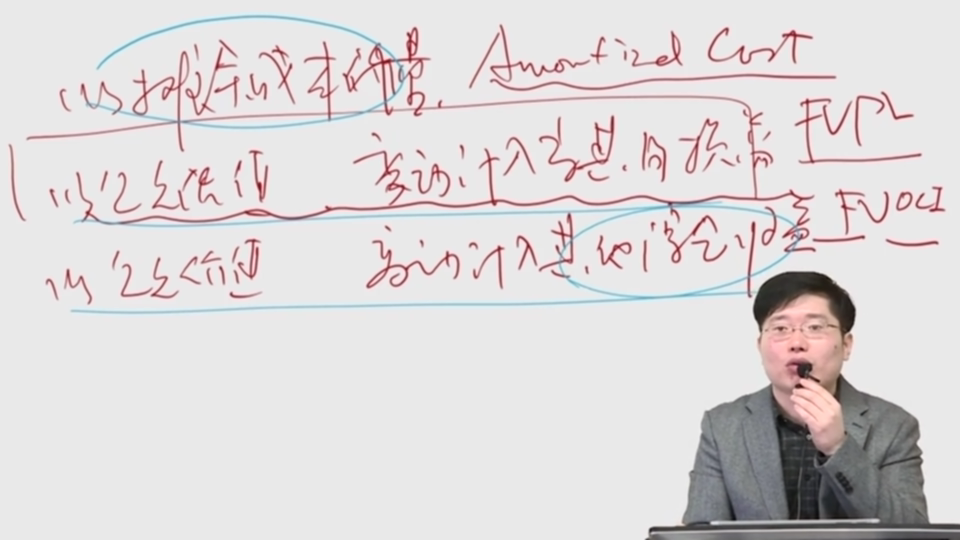 以摊余成本计量 Amortized Cost
以公允价值 变动计入当期损益 FVPL
以公允价值 变动计入其他综合收益 FVOCI